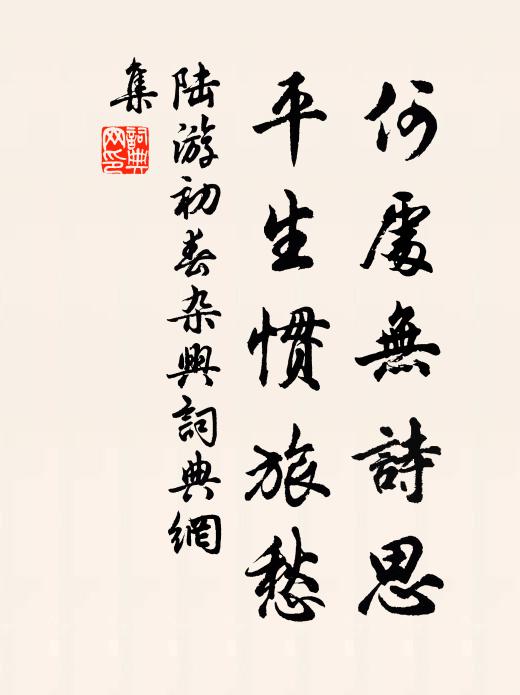 何處無詩思
平生慣旅愁
陆游初春杂興詞典網
集
詞典
网印